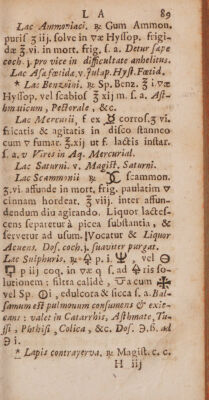 L A 89
Lac Ammoniaci, ℞ Gum Ammon.
puris ℥ iij. solve in væ Hyssop. frigi-
dæ ℥. vi. in mort. frig. s. a. Detur sæpe
coch. j. pro vice in difficultate anhelitus.
Lac Assa fœtida, v. Julap. Hyst. Fœtid.
* Lac Benzoini, ℞ Sp. Benz. ʒ i væ
Hyssop. vel scabios ʒ xij m. s. a. Ast-
hmaticum, Pectorale, &c.
Lac Mercurii, f ex ☿ corros. ʒ vi.
fricatis & agitatis in disco stanneo
cum v fumar. ℥. xij ut f. lactis instar.
s. a. v Vires in Aq. Mercurial.
Lac Saturni. v. Magist. Saturni.
Lac Scammonii ℞ scammon.
ʒ. vi. affunde in mort. frig. paulatim v
cinnam hordeat. ℥ viij. inter affun-
dendum diu agitando. Liquor lactes-
cens separetur à picea substantia, &
servetur ad usum. Vocatur & Liquor
Acuens. Dos. coch. j. suaviter purgat.
Lac Sulphuris. ℞ 🜍 p. i. vel
p iij coq. in væ q s. ad ris so-
lutionem: filtra calidè, cum
vel Sp. i, edulcora & sicca s. a. Bal-
samum est pulmonum consumens & exic-
cans: valet in Catarrhis, Asthmate, Tu-
ssi, Phthisi, Colica, &c. Dos. ℈. ß. ad
℈ i.
* Lapis contrayerva. ℞ Magist. c. c.
H iij